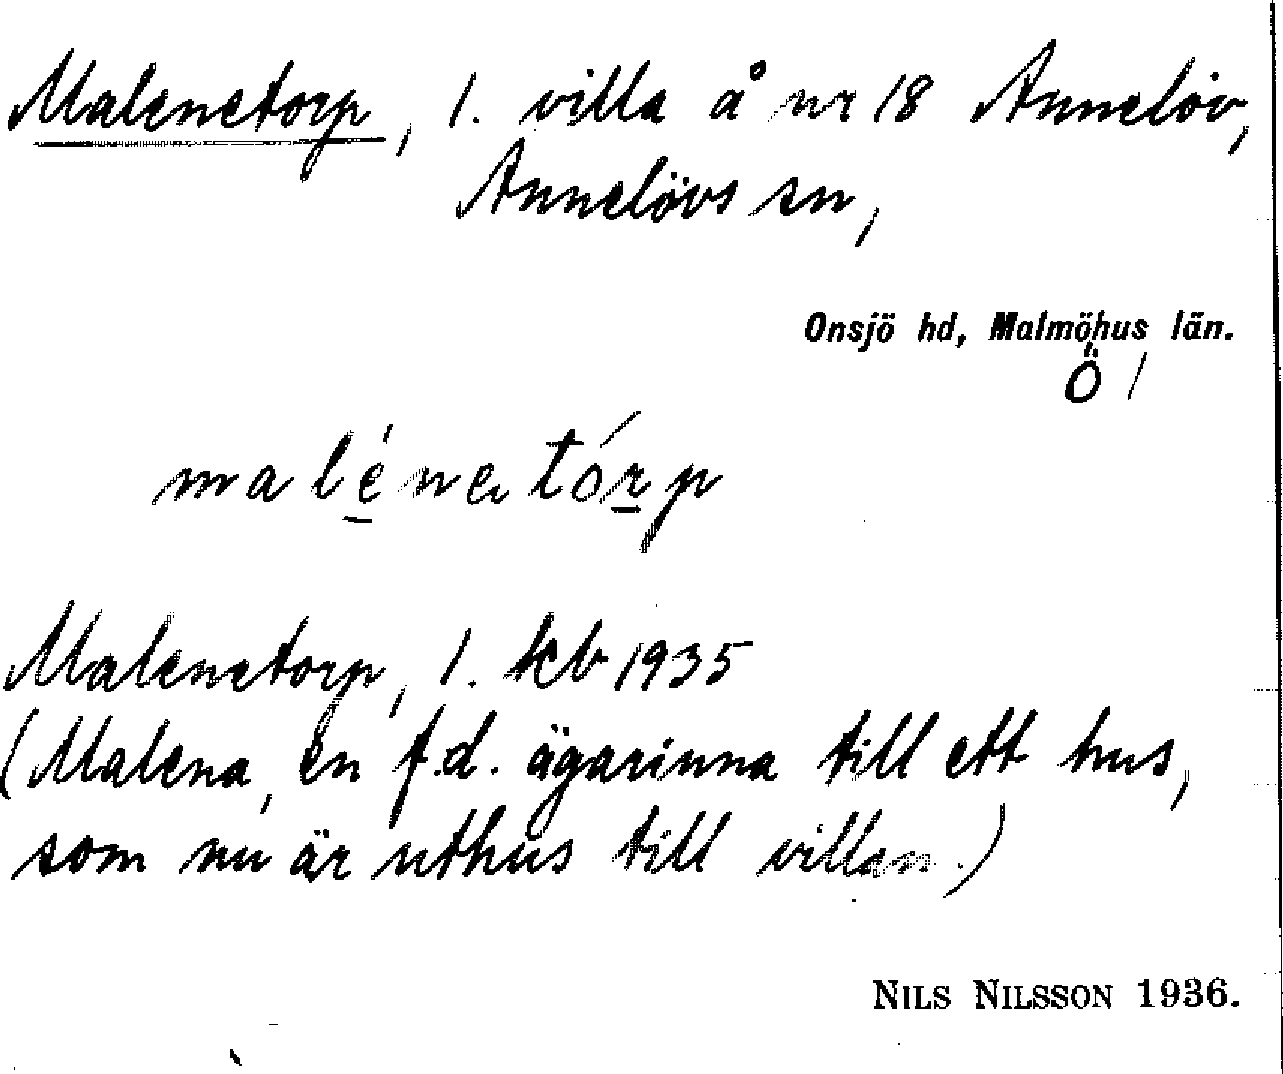 Malenetorp, 1. villa å nr 18 Annelöv,
Annelövs sn,
Onsjö hd, Malmöhus län.
Ö /
malénatórp
Malenetorp, 1. kb 1935
(Malena, en f.d. ägarinna till ett hus,
som nu är uthus till villan.)
NILS NILSSON 1936.